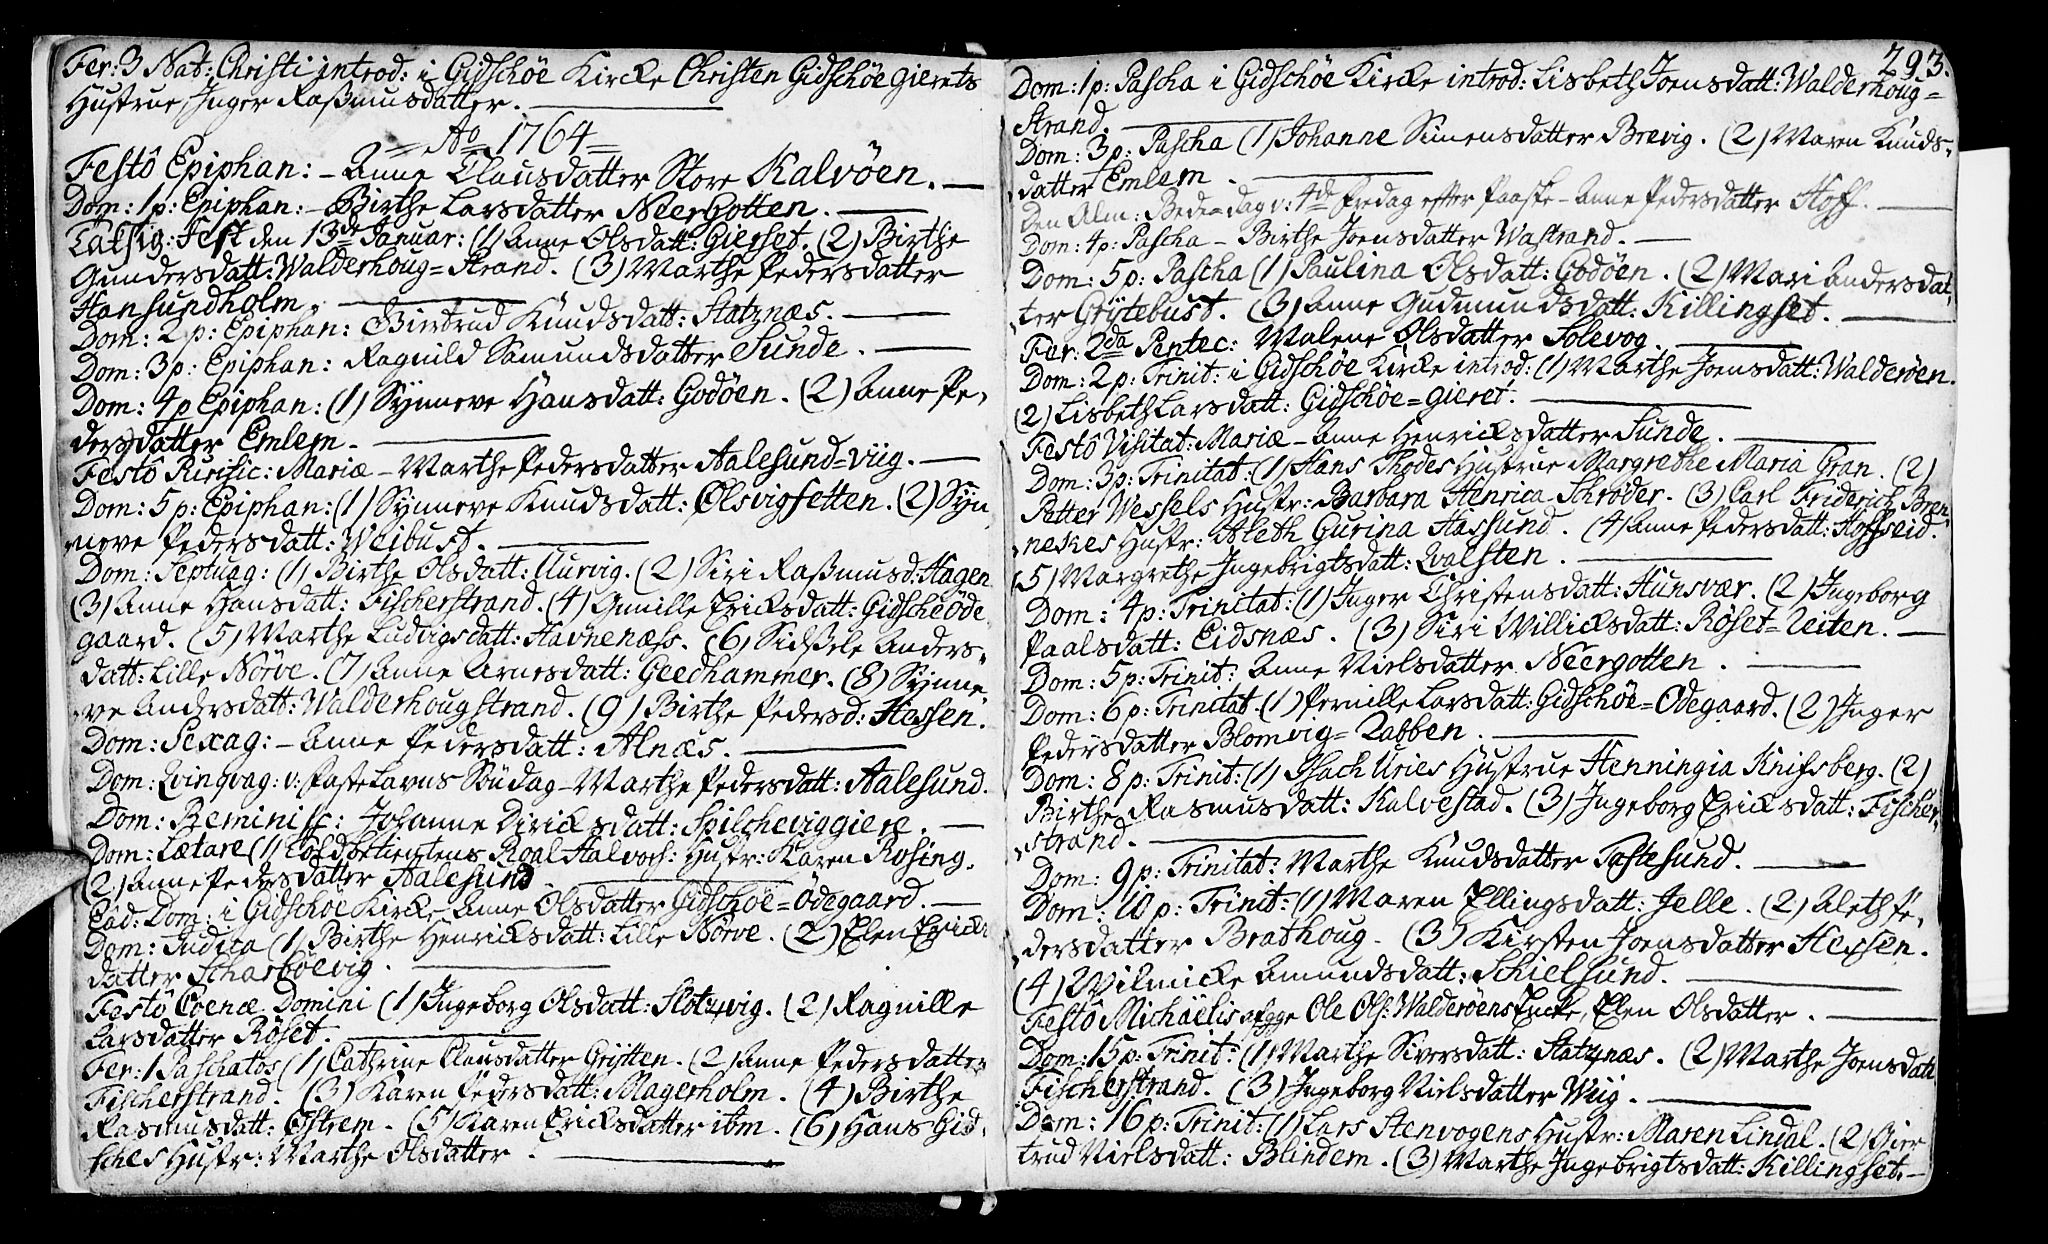 Fer: 3 Nat: Christi introd: i Gidschöe Kircke Christen Gidschöe gierets
Hustrue, Inger Rasmusdatter.
= Ao 1764 =
Festô Epiphan: - Anne Clausdatter Store Kalvöen.
Dom: 1 p: Epiphan: - Birthe Larsdatter Neergotten.
Fest den 13de Januar: (1) Anne Olsdatt: Gierset. (2) Birthe
Gundersdatt: Walderhoug=Strand. (3) Marthe Pedersdatter
Hansundholm.
Dom: 2 p: Epiphan: Giertrud Knudsdatt: Slatznæs.
Dom: 3 p: Epiphan: Ragnild Samundsdatter Sunde.
Dom: 4 p Epiphan: (1) Synneve Hansdatt: Godöen. (2) Anne Pe-
dersdatter Emlem.
Festô Purific: Mariæ - Marthe Pedersdatter Aalesund=viig.
Dom: 5 p: Epiphan: (1) Synneve Knudsdatt: Olsvigsetten. (2) Syn-
neve Pedersdatt: Weibust.
Dom: Septuag: (1) Birthe Olsdatt: Aurvig. (2) Siri Rasmusd: Hagen
(3) Anne Hansdatt: Fischerstrand. (4) Gunille Ericksdatt: Gidscheöde
gaard. (5) Marthe Ludvigsdatt: Havnenæss. (6) Sidsele Anders-
datt: Lille Nörve. (7) Anne Arnesdatt: Geedhammer. (8) Synne-
ve Andersdatt: Walderhougstrand. (9) Birthe Pedersd: Hessen.
Dom: Sexag: - Anne Pedersdatt: Alnæs.
Dom: Qvinqvag: v: Fastelavns Söndag - Marthe Pedersdatt: Aalesund.
Dom: Reminisc: Johanne Diricksdatt: Spilcheviggiere.
Dom: Lætare (1) Toldbetientens Roal Halvors: Hustr: Karen Rosing.
(2) Anne Pedersdatter Aalesund
Ead: Dom: i Gidschöe Kirke Anne Olsdatter Gidschöe=Ödegaard.
Dom: Judica (1) Birthe Henricksdatt: Lille Nörve. (2) Elen Ericks
datter Scharböevig.
Festô Coenæ Domini (1) Ingeborg Olsdatt: Slotzvig. (2) Ragnille
Larsdatter Röset.
Fer: 1 Paschatos (1) Cathrine Clausdatter Grytten. (2) Anne Pedersdatter
Fischerstrand. (3) Karen Pedersdatt: Magerholm. (4) Birthe
Rasmusdatt: Östrem. (5) Karen Ericksdatter ibm. (6) Hans Gid-
sches Hustr: Marthe Olsdatter.
293.
Dom: 1 p: Pascha i Gidschöe Kircke introd: Lisbeth Joensdatt: Walderhoug=
Strand.
Dom: 3 p: Pascha (1) Johanne Simensdatter Brevig. (2) Maren Knuds-
datter Emlem.
Den Alm: Bede=dag v: 4de Fredag efter Paaske - Anne Pedersdatter Hoff.
Dom: 4 p: Pascha - Birthe Joensdatter Wastrand.
Dom: 5 p: Pascha (1) Paulina Olsdatt: Godöen. (2) Mari Andersdat-
ter Grytebust. (3) Anne Gudmundsdatt: Killingset.
Fer: 2da Pentec: Malene Olsdatter Solevog.
Dom: 2 p: Trinit: i Gidschöe Kircke introd: (1) Marthe Joensdatt: Walderöen.
(2) Lisbeth Larsdatt: Gidschöe=gieret.
Festô Visitat: Mariæ - Anne Henricksdatter Sunde.
Dom: 3 p: Trinitat: (1) Hans Thodes Hustrue Margrethe Maria Gran. (2)
Petter Wessels Hustr: Barbara Henrica Schröder. (3) Carl Friderich Bren-
nekes Hustr: Aleth Gurina Hassund. (4) Anne Pedersdatt: Hoffseid.
(5) Margrethe Ingebrigtsdatt: Qvalsten.
Dom: 4 p: Trinitat: (1) Inger Christensdatt: Hunsvær. (2) Ingeborg
Paalsdatt: Eidsnæs. (3) Siri Willicksdatt: Röset=Reiten.
Dom: 5 p: Trinit: Anne Nielsdatter Neergotten.
Dom: 6 p: Trinitat. (1) Pernille Larsdatt: Gidschöe=Ödegaard. (2) Inger
Pedersdatter Blomvig=Rabben.
Dom: 8 p: Trinit: (1) Isach Uries Hustrue Henningia Knifsberg. (2)
Birthe Rasmusdatt: Kalvestad. (3) Ingeborg Ericksdatt: Fischer-
strand.
Dom: 9 p: Trinitat: Marthe Knudsdatter Tastesund.
Dom: 10 p: Trinit: (1) Maren Ellingsdatt: Jelle. (2) Aleth Pe-
dersdatter Brathoug. (3) Kirsten Joensdatter Hessen.
(4) Wilmicke Amundsdatt: Schielsund.
Festô Michaëlis afgge Ole Ols: Walderöens Encke, Elen Olsdatter.
Dom: 15 p: Trinit: (1) Marthe Siversdatt: Slatznæs. (2) Marthe Joensdatt
Fischerstrand. (3) Ingeborg Nielsdatter Wiig.
Dom: 16 p: Trinit: (1) Lars Stenvogens Hustr: Maren Lindal. (2) Gier
trud Nielsdatt: Blindem. (3) Marthe Ingebrigtsdatt: Killingset.